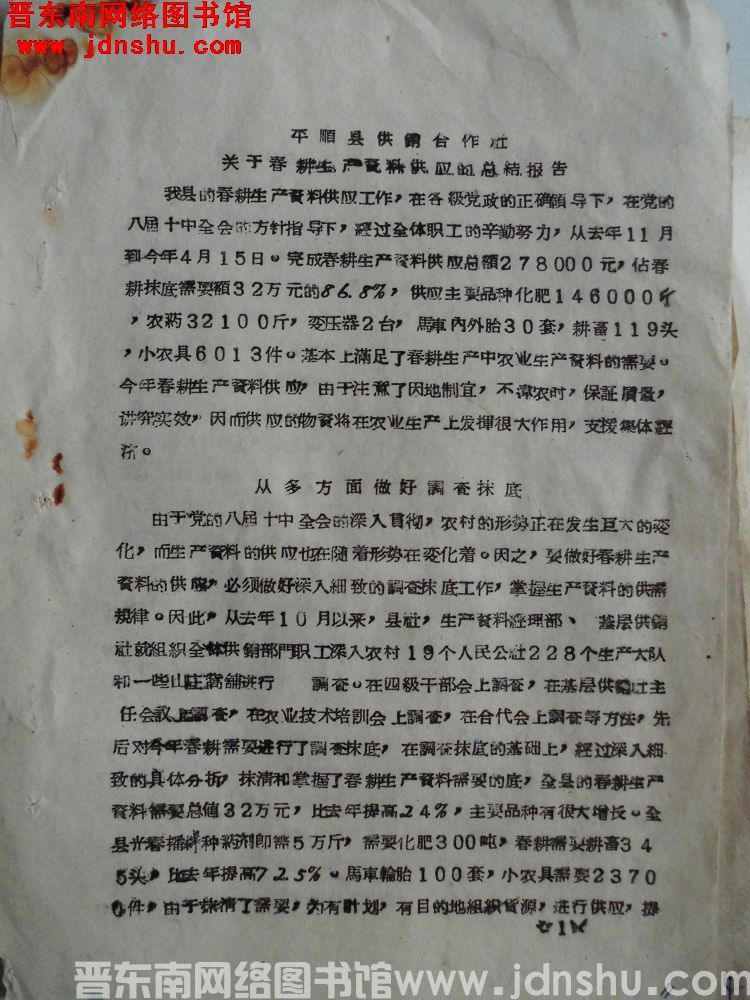 晋东南网络图书馆
www.jdnshu.com
平順县供銷合作社
关于春耕生产資料供应的总结报告
我县的春耕生产資料供应工作，在各級党政的正确領导下，在党的
八届十中全会的方针指导下，經过全体职工的辛勤努力，从去年11月
到今年4月15日。完成春耕生产資料供应总額278000元，佔春
耕抹底需要額32万元的86.8%，供应主要品种化肥146000斤
，农葯32100斤，变压器2台，馬車內外胎30套，耕畜119头
，小农具6013件。基本上滿足了春耕生产中农业生产資料的需要。
今年春耕生产資料供应，由于注意了因地制宜，不違农时，保証質量，
讲究实效，因而供应的物資将在农业生产上发揮很大作用，支援集体經
济。
从多方面做好調查抹底
由于党的八届十中全会的深入貫彻，农村的形势正在发生巨大的变
化，而生产資料的供应也在随着形势在变化着。因之，要做好春耕生产
資料的供应，必须做好深入細致的調查抹底工作，掌握生产資料的供需
規律。因此，从去年10月以来，县社，生产資料經理部、基层供銷
社就組织全体供銷部門职工深入农村19个人民公社228个生产大队
和一些山庄窩舖进行 調查。在四級干部会上調查，在基层供銷社主
任会議上調查，在农业技术培訓会上調查，在合代会上調查等方法，先
后对今年春耕需要进行了調查抹底，在調查抹底的基础上，經过深入細
致的具体分折，抹清和掌握了春耕生产資料需要的底，全县的春耕生产
資料需要总值32万元，比去年提高24%，主要品种有很大增长。全
县光春播拌种葯剂即需5万斤，需要化肥300吨，春耕需要耕畜34
5头，比去年提高72.5%。馬車輪胎100套，小农具需要2370
0件，由于抹清了需要，为有計划，有目的地組织貨源，进行供应，提
1
晋东南网络图书馆www.jdnshu.com